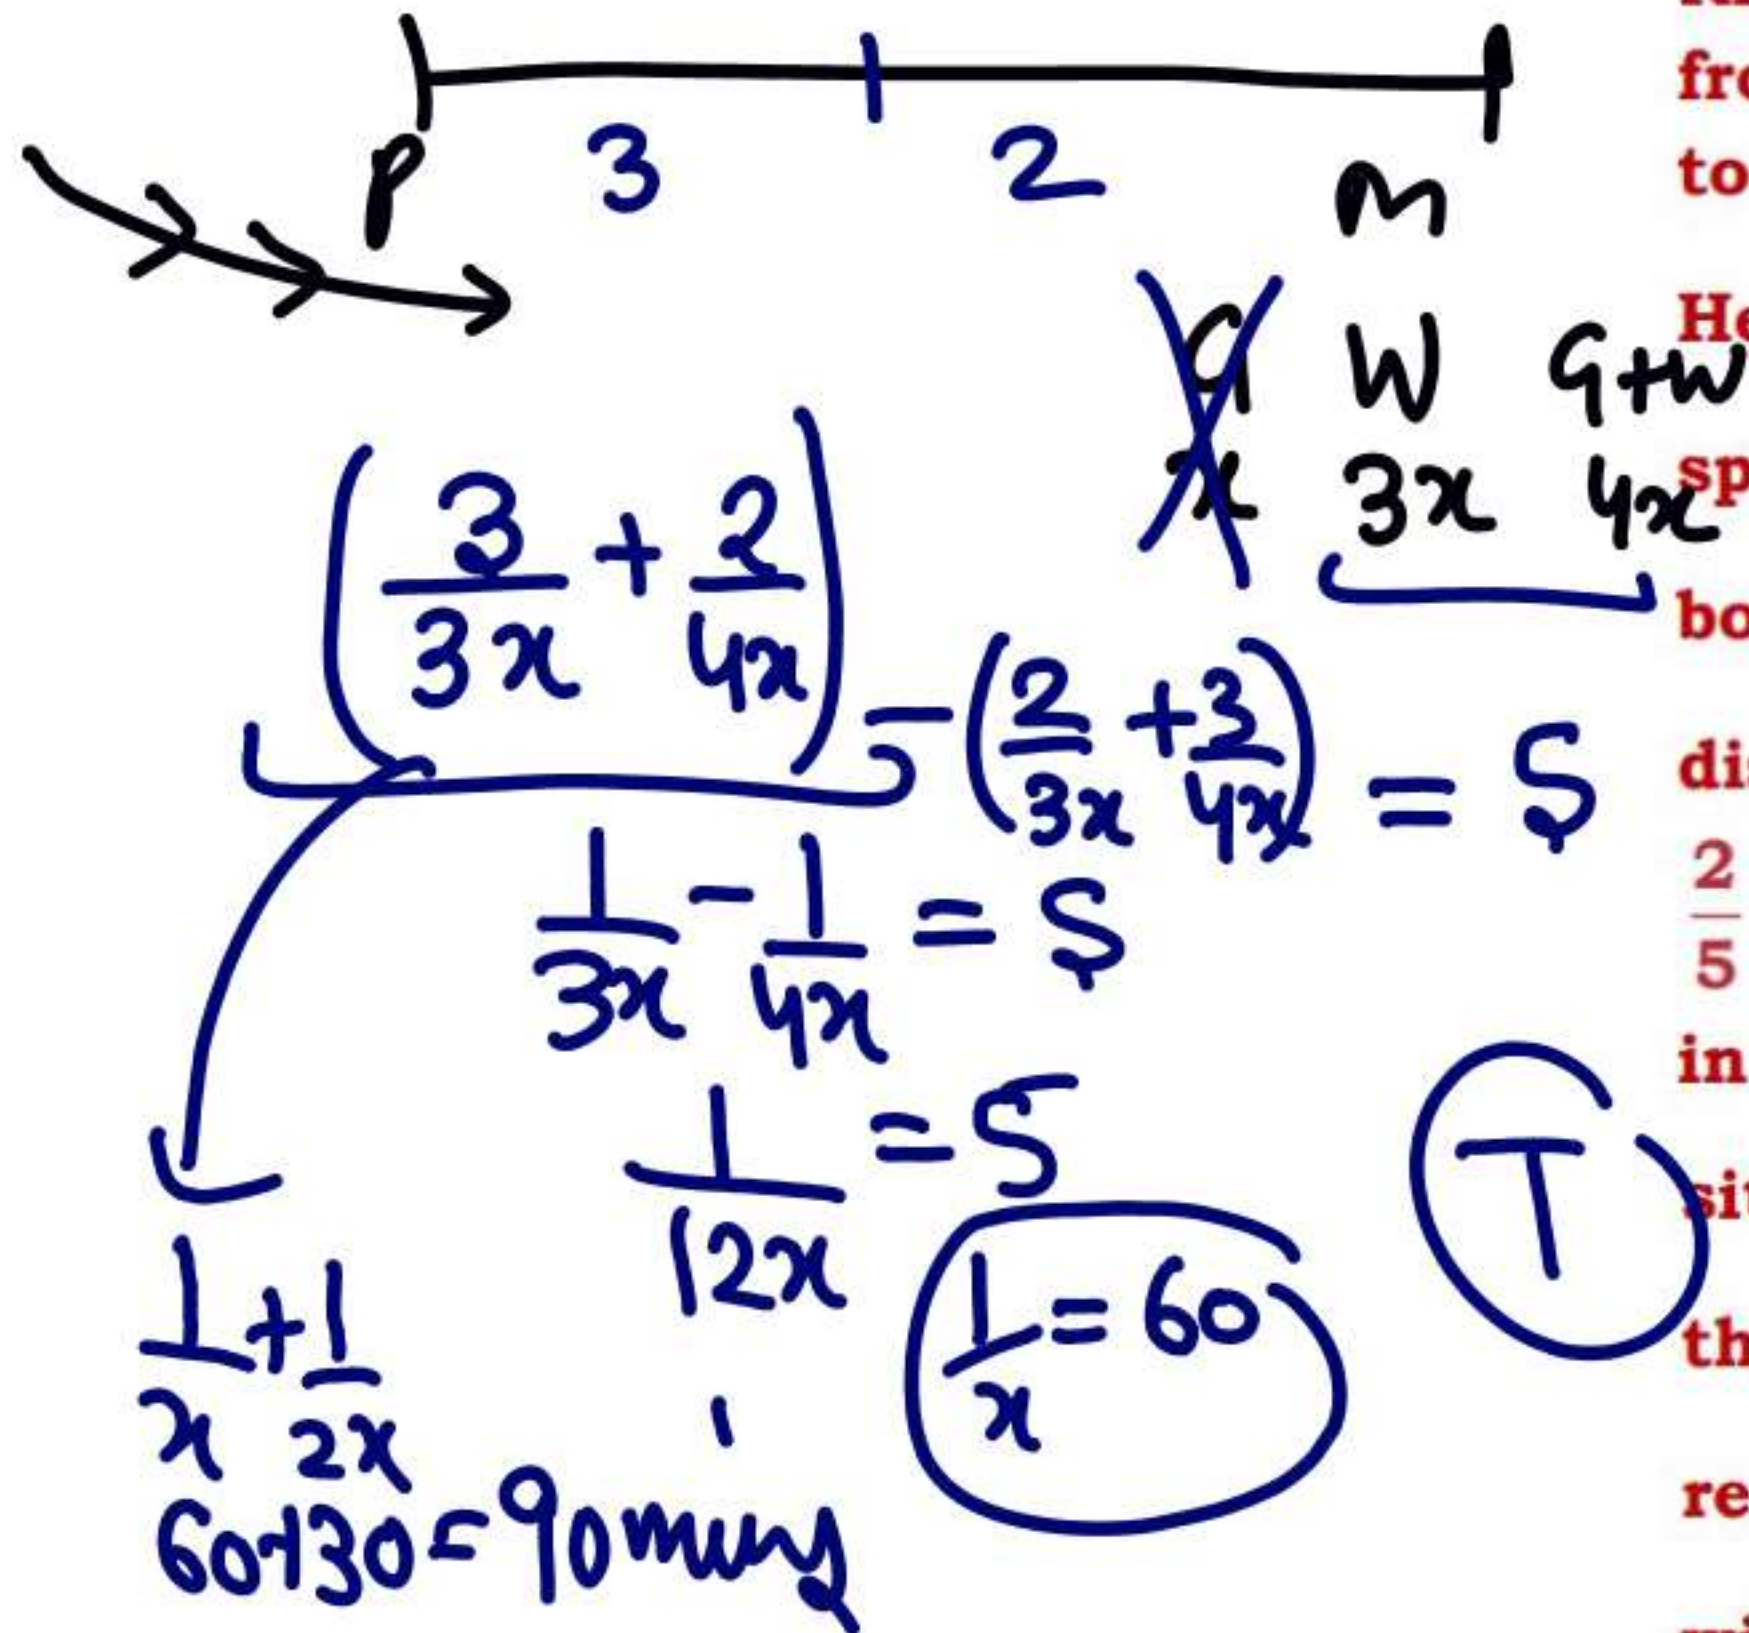 P 3 2 M
G W G+W
x 3x 4x
(3/3x + 2/4x) - (2/3x + 3/4x) = 5
1/3x - 1/4x = 5
1/12x = 5
1/x = 60
T
1/x + 1/2x
60+30=90 mins
to
He
sp
bo
2
5
in
th
re